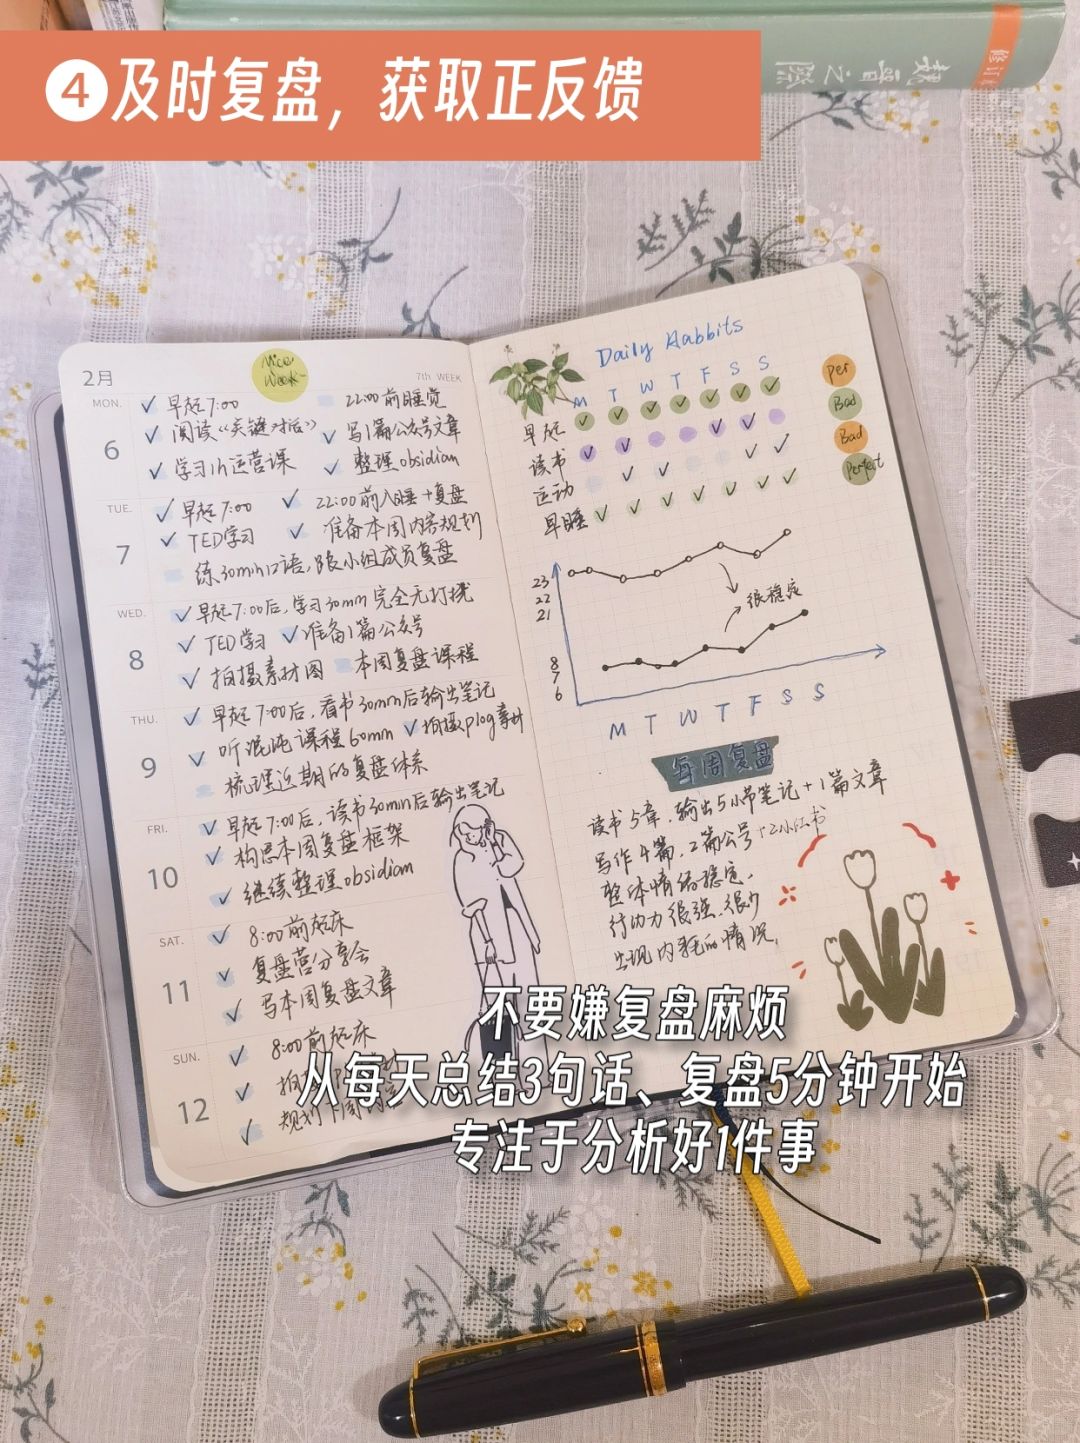 ④及时复盘，获取正反馈
规晋之际
修订
2月
Nice Week
7th WEEK
MON.
6
✓ 早起7:00
22:00前睡觉
✓ 阅读《关键对话》
✓ 写1篇公众号文章
✓ 学习1h运营课
✓ 整理obsidian
TUE.
7
✓ 早起7:00
✓ 22:00前入睡+复盘
✓ TED学习
✓ 准备本周内容规划
练30min口语,跟小组成员复盘
WED.
8
✓ 早起7:00后,学习30min完全无打扰
✓ TED学习 ✓ 准备1篇公众号
✓ 拍摄素材图 本周复盘课程
THU.
9
✓ 早起7:00后,看书30min后输出笔记
✓ 听混沌课程60min ✓ 拍摄plog素材
梳理近期的复盘体系
FRI.
10
✓ 早起7:00后,读书30min后输出笔记
✓ 构思本周复盘框架
✓ 继续整理obsidian
SAT.
11
✓ 8:00前起床
✓ 复盘营分享会
✓ 写本周复盘文章
SUN.
12
✓ 8:00前起床
✓ 拍
✓ 规划下周内容
Daily Habbits
M T W T F S S
早起 ✓ ✓ ✓ ✓ ✓ ✓ ✓ Per
读书 ✓ ✓ ✓ ✓ Bad
运动 ✓ ✓ ✓ ✓ Bad
早睡 ✓ ✓ ✓ ✓ ✓ ✓ ✓ Perfect
23
22
21
很稳定
8
7
6
M T W T F S S
每周复盘
读书5章,输出5小节笔记+1篇文章
写作4篇,2篇公号+2小红书
整体情绪稳定,
行动力很强,很少
出现内耗的情况,
不要嫌复盘麻烦
从每天总结3句话、复盘5分钟开始
专注于分析好1件事